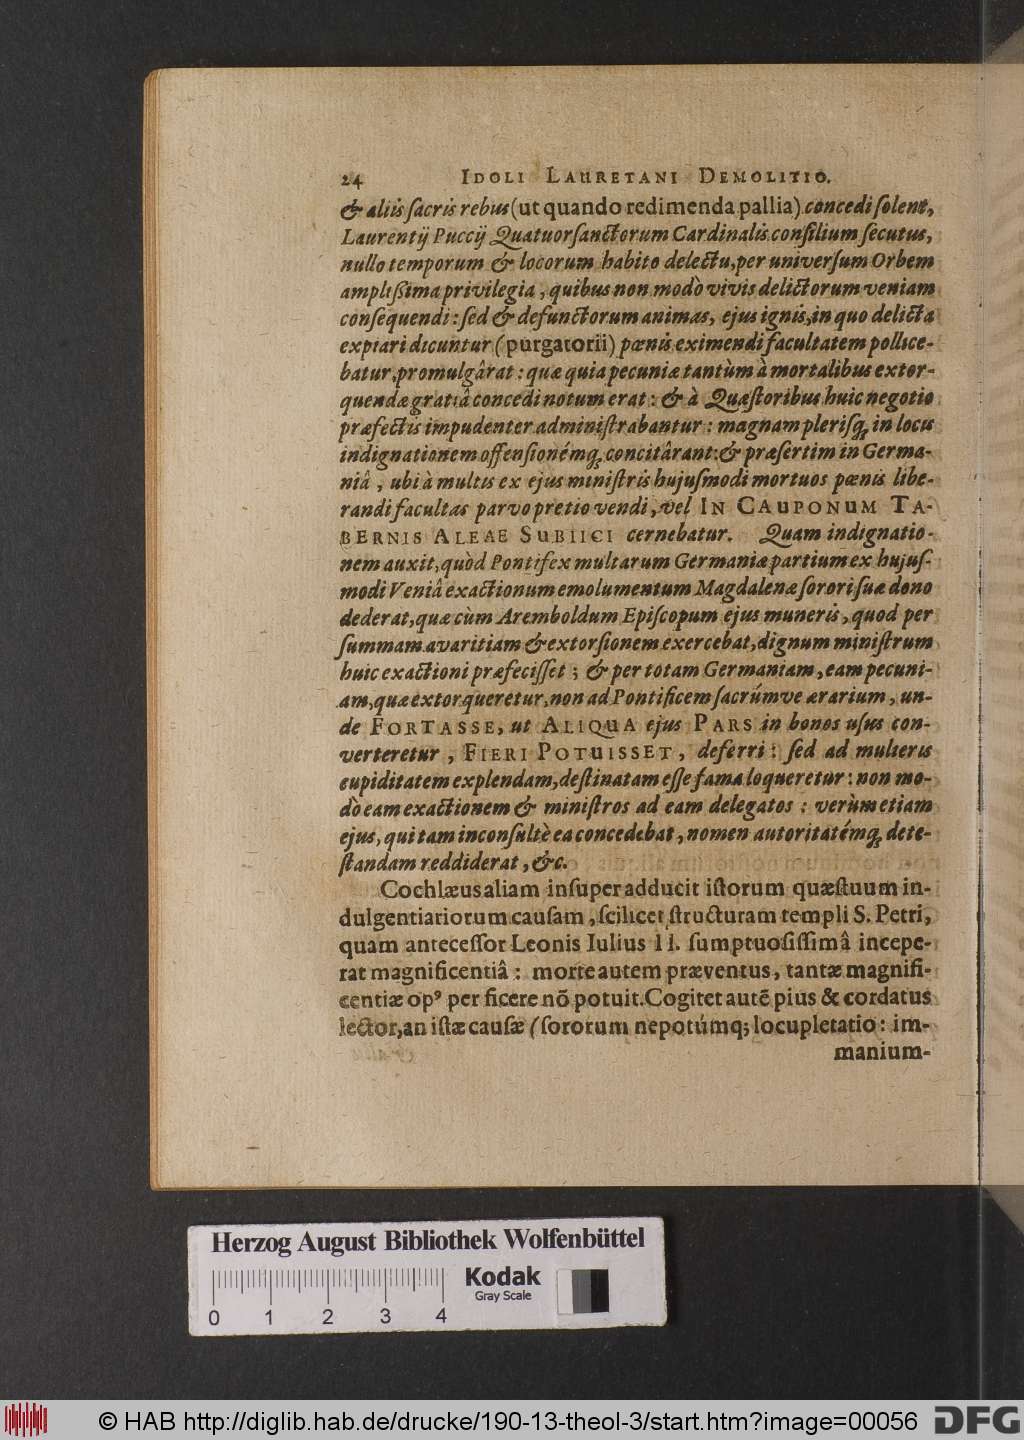 24 IDOLI LAURETANI DEMOLITIO.
& aliis ſacris rebus (ut quando redimenda pallia) concedi ſolent,
Laurentij Puccij Quatuor ſanctorum Cardinalis conſilium ſecutus,
nullo temporum & locorum habito delectu, per univerſum Orbem
ampliſſima privilegia, quibus non modò vivis delictorum veniam
conſequendi: ſed & defunctorum animas, ejus ignis, in quo delicta
expiari dicuntur (purgatorii) pœnis eximendi facultatem pollice-
batur, promulgârat: quæ quia pecuniæ tantùm à mortalibus extor-
quendæ gratiâ concedi notum erat: & à Quæſtoribus huic negotio
præfectis impudenter adminiſtrabantur: magnam pleriſq; in locis
indignationem offenſionémq; concitârant: & præſertim in Germa-
niâ, ubi à multis ex ejus miniſtris hujuſmodi mortuos pœnis libe-
randi facultas parvo pretio vendi, vel IN CAUPONUM TA-
BERNIS ALEAE SUBIICI cernebatur. Quam indignatio-
nem auxit, quòd Pontifex multarum Germaniæ partium ex hujuſ-
modi Veniâ exactionum emolumentum Magdalenæ ſorori ſuæ dono
dederat, quæ cùm Aremboldum Epiſcopum ejus muneris, quod per
ſummam avaritiam & extorſionem exercebat, dignum miniſtrum
huic exactioni præfeciſſet; & per totam Germaniam, eam pecuni-
am, quæ extorqueretur, non ad Pontificem ſacrúmve ærarium, un-
de FORTASSE, ut ALIQUA ejus PARS in bonos uſus con-
verteretur, FIERI POTUISSET, deferri: ſed ad mulieris
cupiditatem explendam, deſtinatam eſſe fama loqueretur: non mo-
dò eam exactionem & miniſtros ad eam delegatos: verùm etiam
ejus, qui tam inconſultè ea concedebat, nomen autoritatémq; dete-
ſtandam reddiderat, &c.
Cochlæus aliam inſuper adducit iſtorum quæſtuum in-
dulgentiariorum cauſam, ſcilicet ſtructuram templi S. Petri,
quam anteceſſor Leonis Iulius II. ſumptuoſiſſimâ incepe-
rat magnificentiâ: morte autem præventus, tantæ magnifi-
centiæ opꝰ per ficere nõ potuit. Cogitet autẽ pius & cordatus
lector, an iſtæ cauſæ (ſororum nepotúmq; locupletatio: im-
manium-
Herzog August Bibliothek Wolfenbüttel
0 1 2 3 4
Kodak
Gray Scale
© HAB http://diglib.hab.de/drucke/190-13-theol-3/start.htm?image=00056
DFG